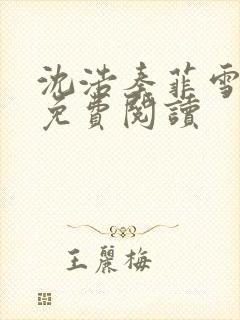 沈浩秦菲雪
免費閱讀
王麗梅